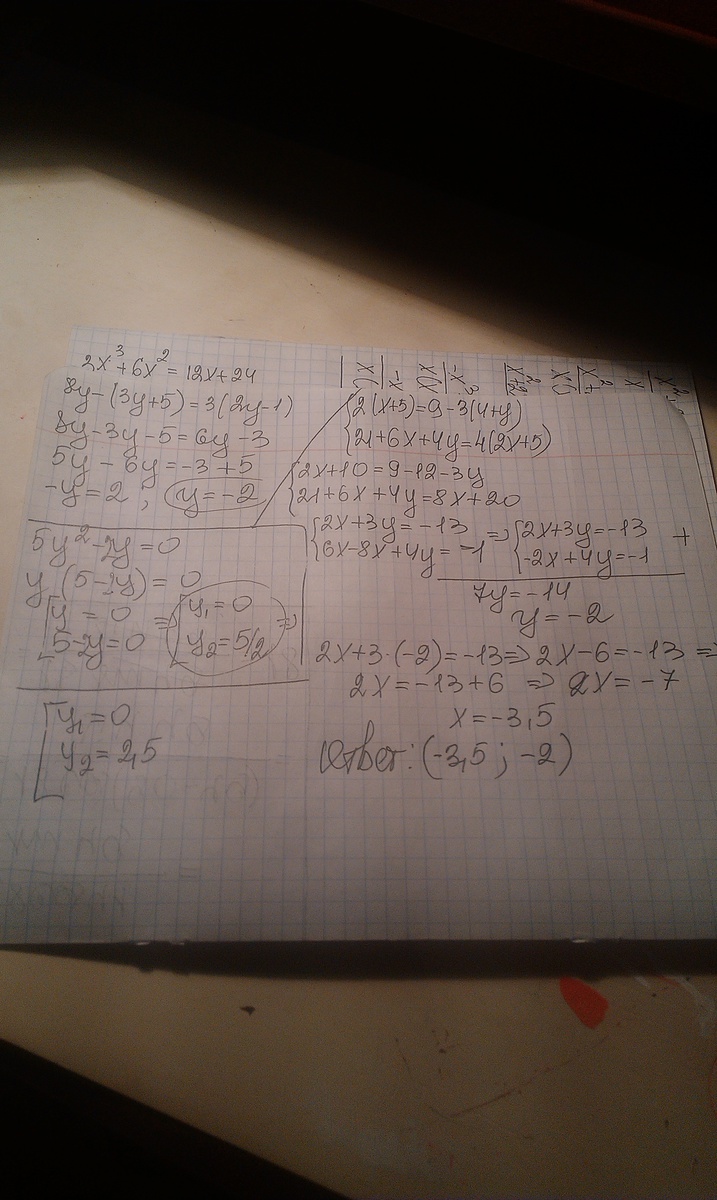 2x³+6x²=12x+24
8y-(3y+5)=3(2y-1)
8y-3y-5=6y-3
5y-6y=-3+5
-y=2; y=-2
5y²-2y=0
y(5-2y)=0
[y=0
5-2y=0 => [y₁=0
y₂=5/2 =>
[y₁=0
y₂=2,5
{2(x+5)=9-3(4+y)
21+6x+4y=4(2x+5)
{2x+10=9-12-3y
21+6x+4y=8x+20
{2x+3y=-13
6x-8x+4y=-1 => {2x+3y=-13
-2x+4y=-1 +
7y=-14
y=-2
2x+3·(-2)=-13=>2x-6=-13 =>
2x=-13+6 => 2x=-7
x=-3,5
Ответ: (-3,5; -2)